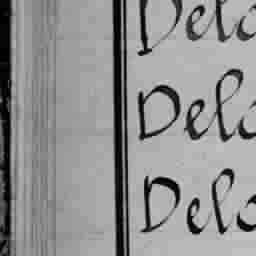 Delo
Delo
Delo